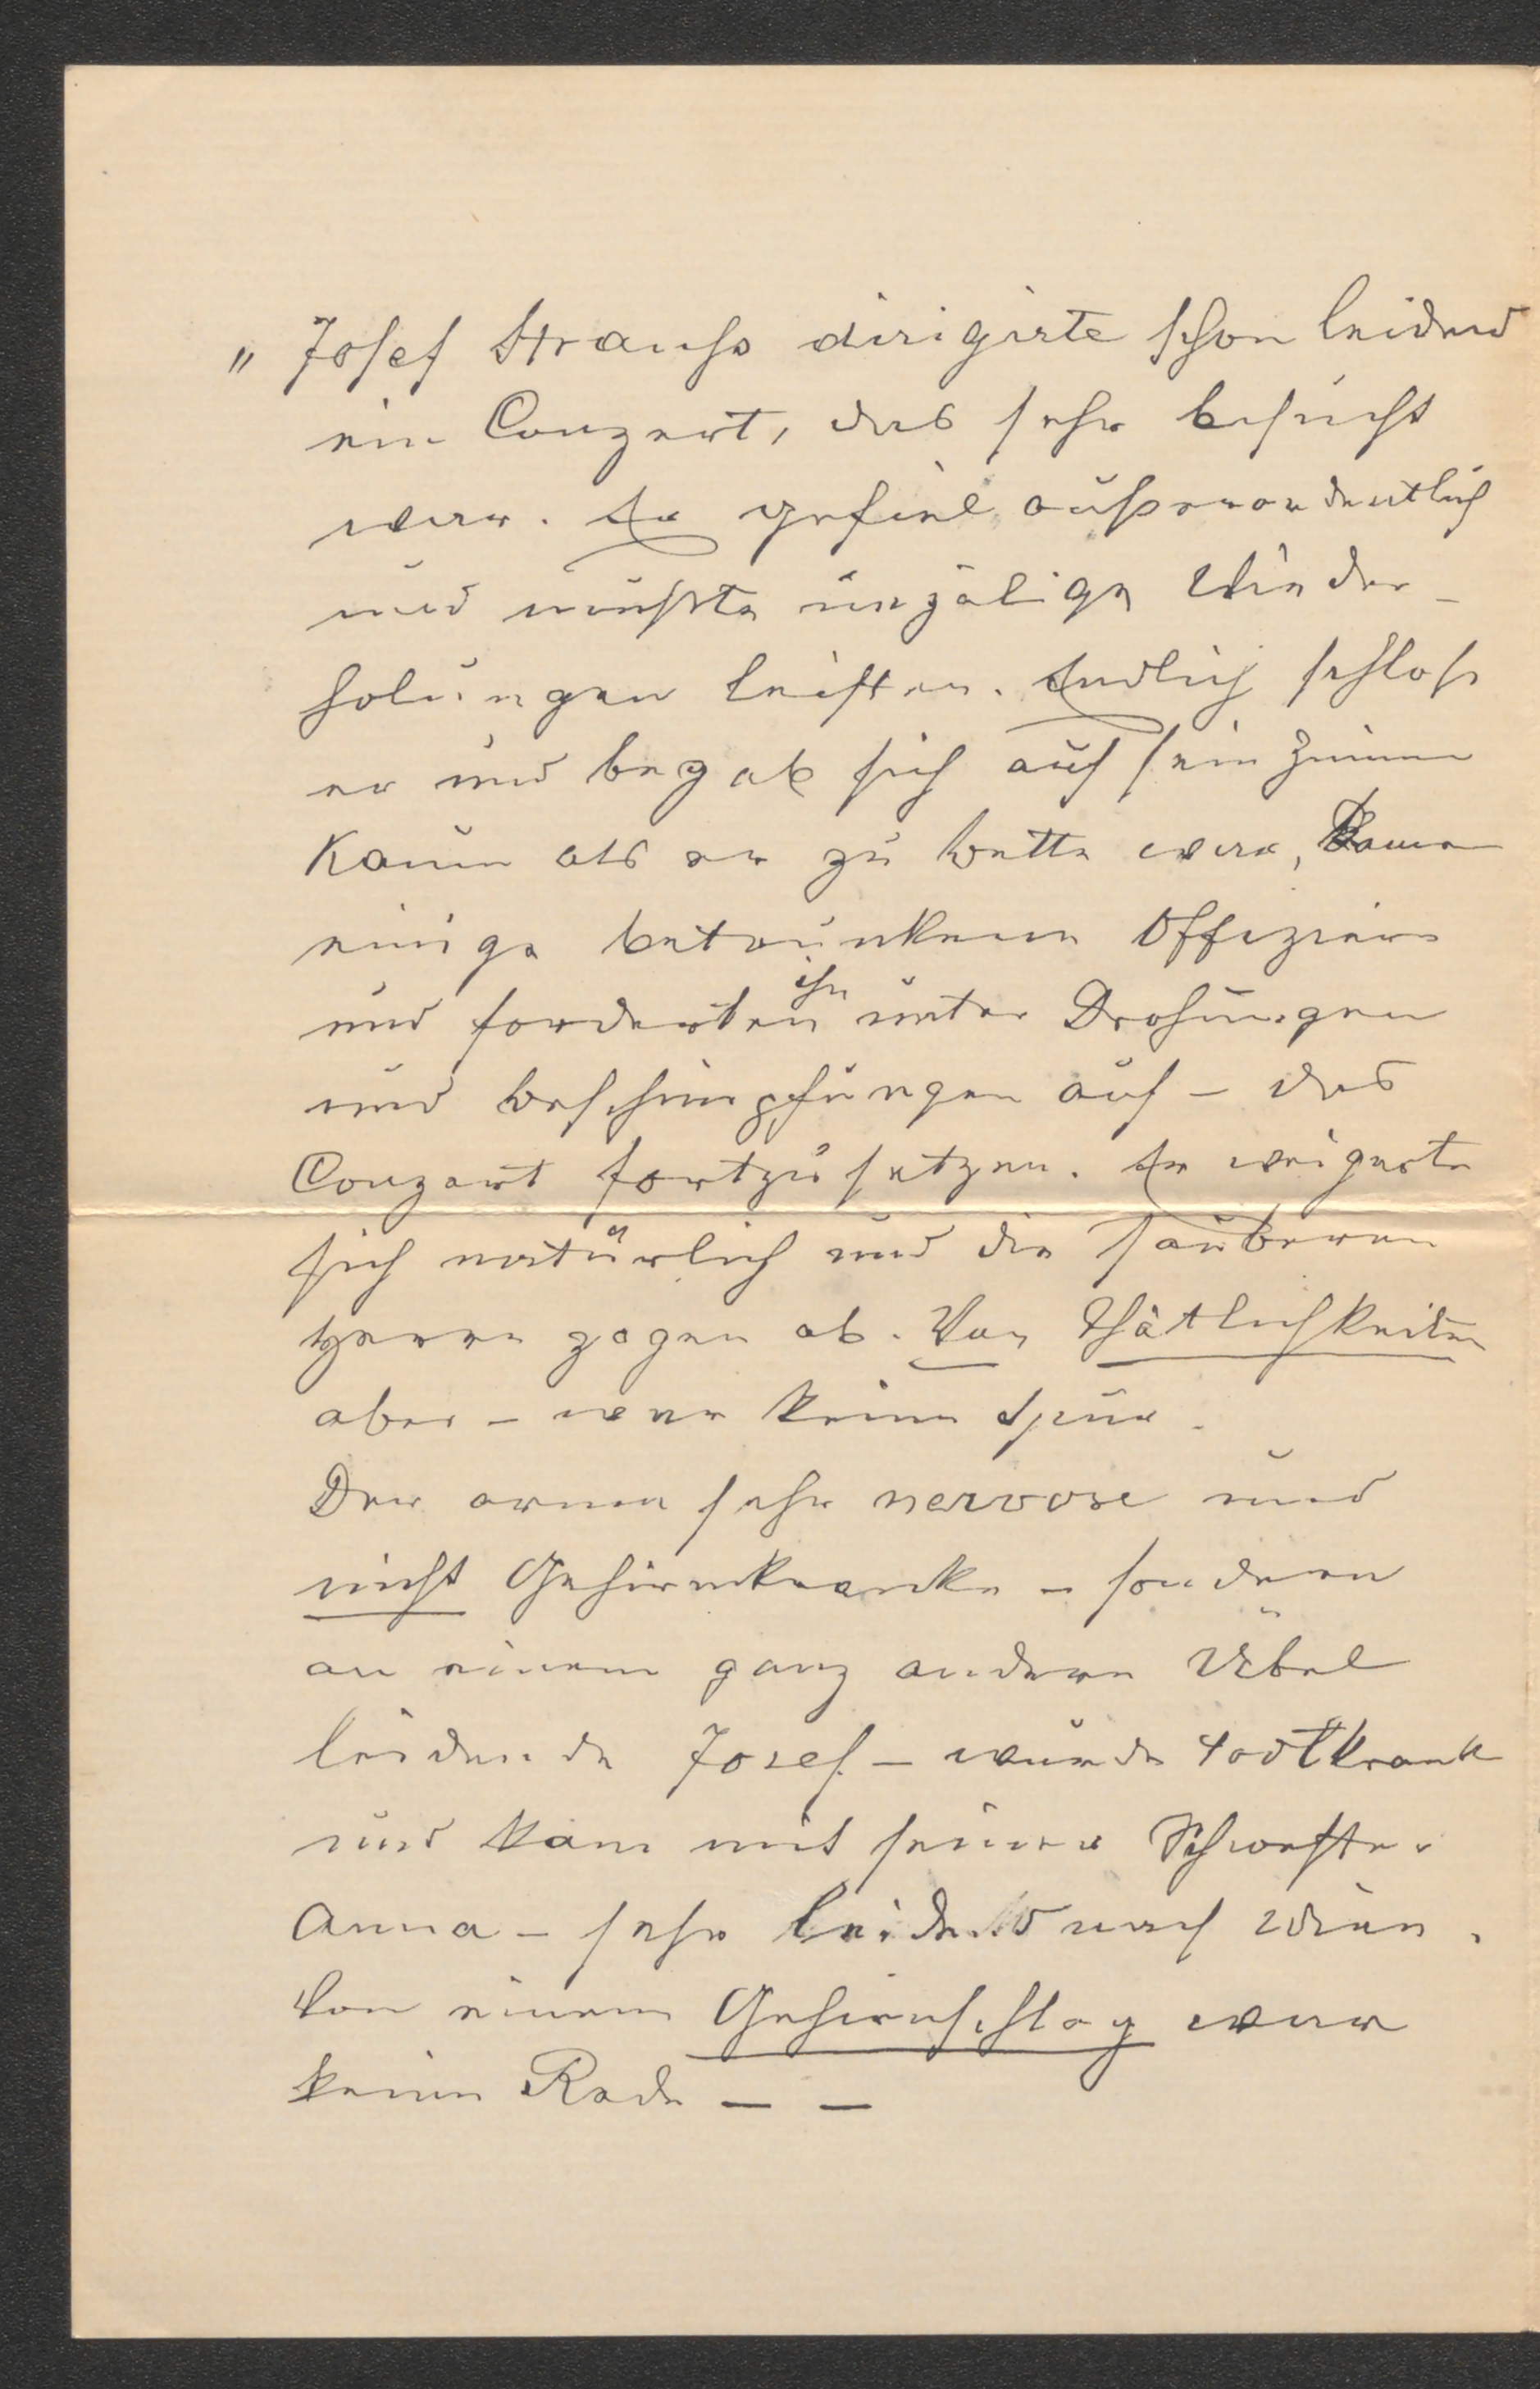 „ Josef Strauss dirigirte schon leidend
ein Conzert, das sehr besucht
war. Er gefiel außerordentlich
und mußte unzälige Wieder-
holungen leisten. Endlich schloß
er und begab sich auf sein Zimmer
Kaum als er zu Bette war, kamen
einige betrunkene Offiziere
und forderten ihn unter Drohungen
und Beschimpfungen auf – das
Conzert fortzusetzen. Er weigerte
sich natürlich und die sauberen
Herren zogen ab. Von Thätlichkeiten
aber – war keine Spur.
Der arme sehr nervose und
nicht Gehirnkranke – sondern
an einem ganz andern Übel
leidende Josef – wurde todtkrank
und kam mit seiner Schwester
Anna – sehr leidend nach Wien.
Von einem Gehirnschlag war
keine Rede – –